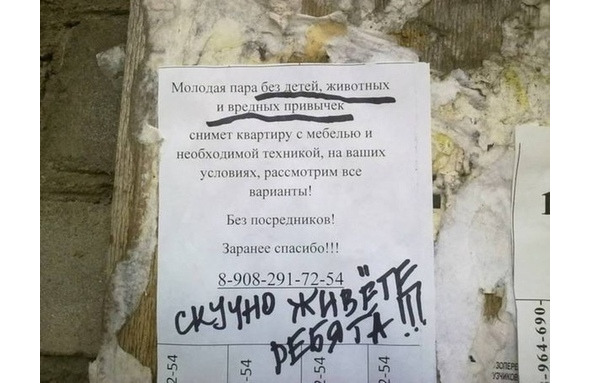 Молодая пара без детей, животных
и вредных привычек
снимет квартиру с мебелью и
необходимой техникой, на ваших
условиях, рассмотрим все
варианты!
Без посредников!
Заранее спасибо!!!
8-908-291-72-54
СКУЧНО ЖИВЁТЕ
РЕБЯТА!!!
2-54
-54
2-54
-54
-964-690-
ЗОПЕРЕ
УЗЧИКОВ